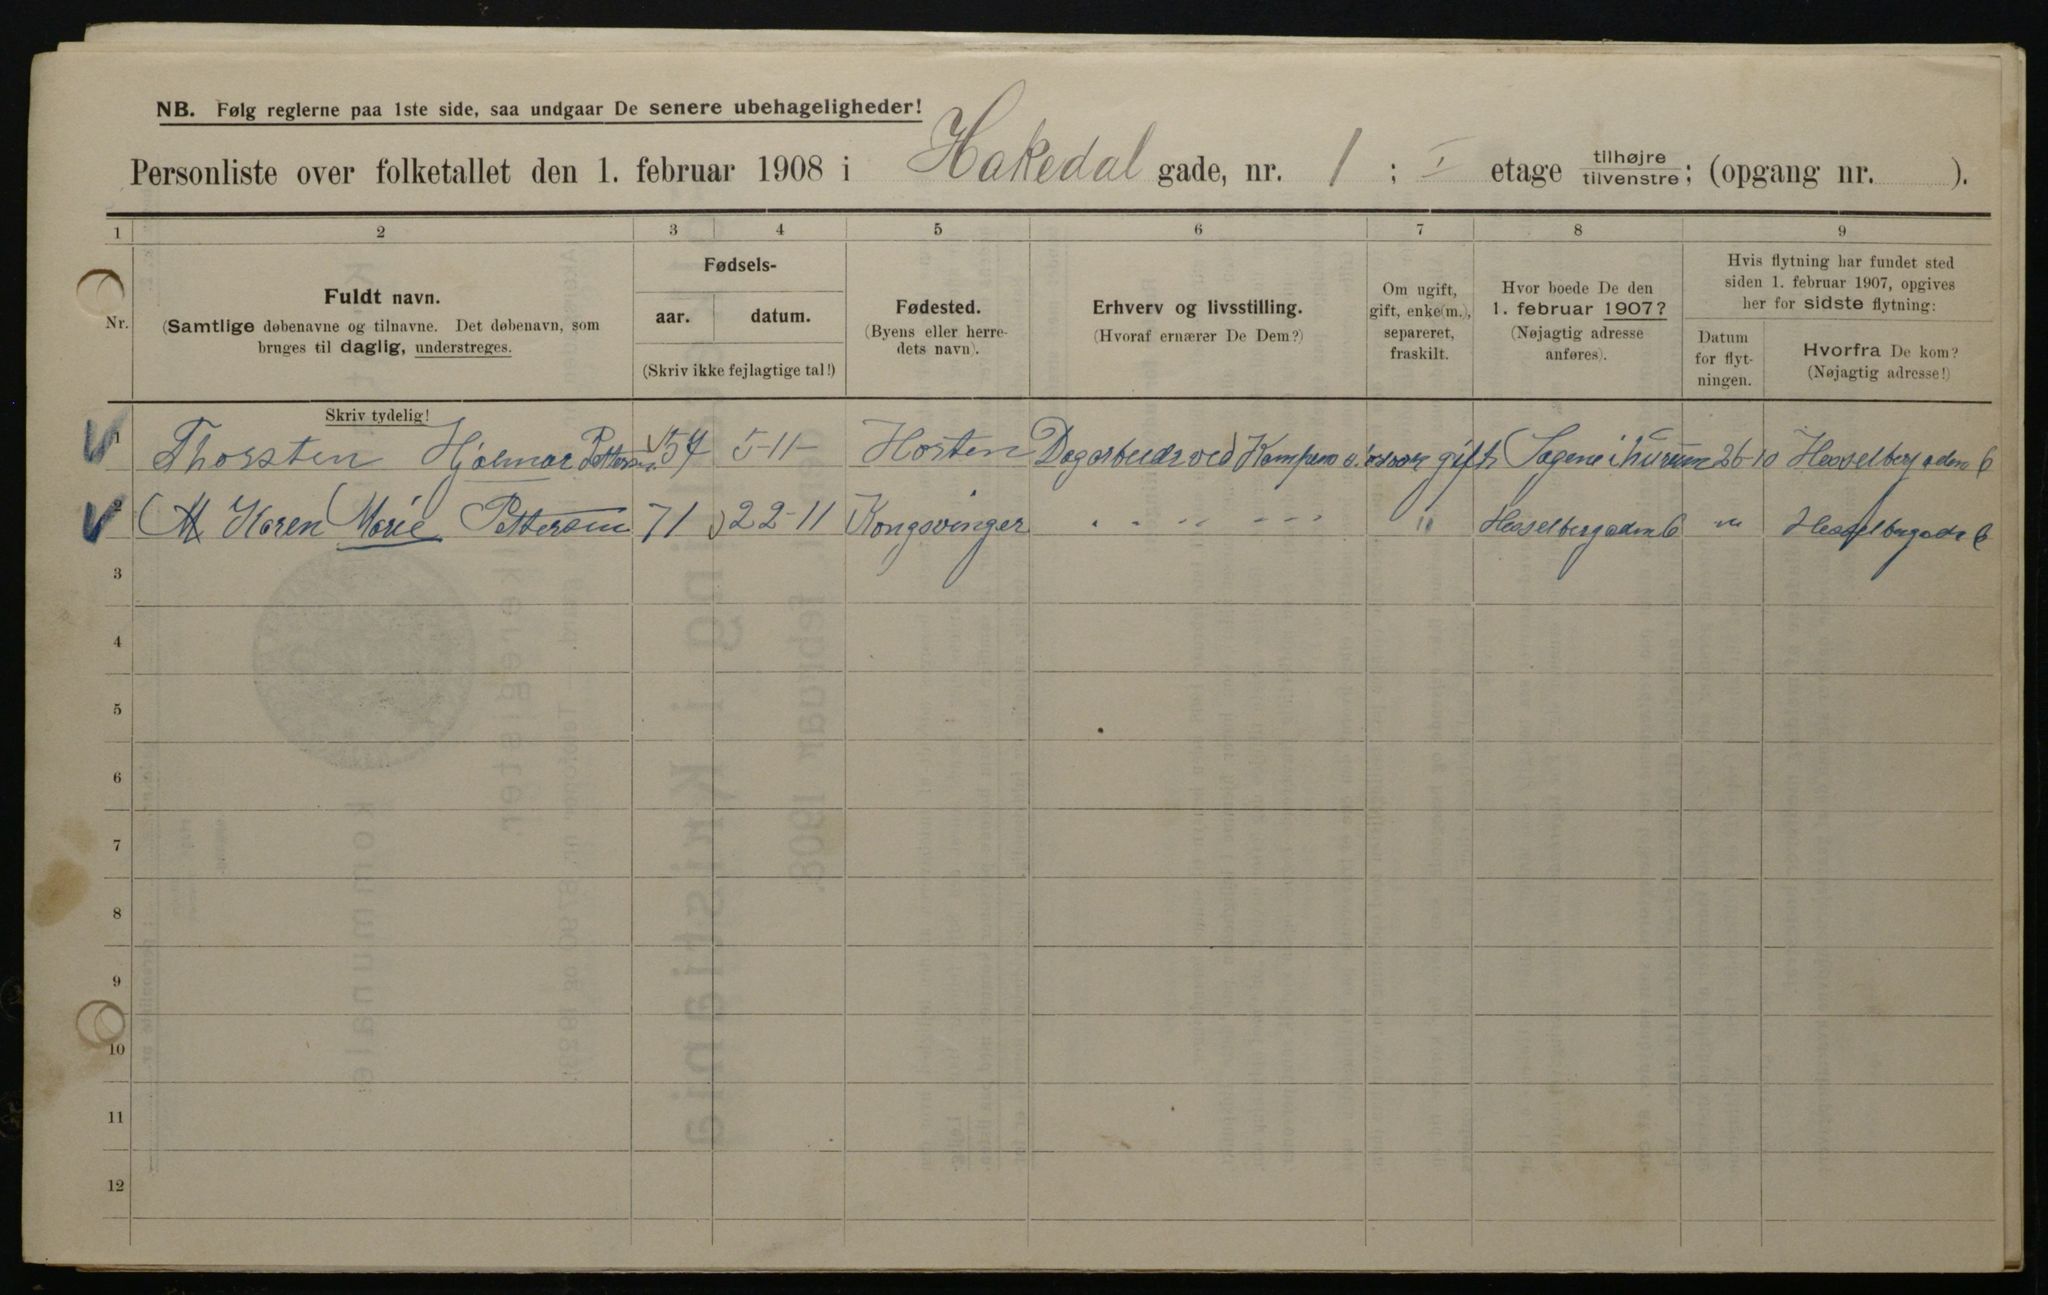 NB. Følg reglerne paa 1ste side, saa undgaar De senere ubehageligheder!
Personliste over folketallet den 1. februar 1908 i Hakedal gade, nr. 1 ; I etage tilhøjre tilvenstre; (opgang nr. ).
1 2 3 4 5 6 7 8 9
Nr.
Fuldt navn.
(Samtlige døbenavne og tilnavne. Det døbenavn, som
bruges til daglig, understreges.
Skriv tydelig!
Fødsels-
aar. datum.
(Skriv ikke fejlagtige tal!)
Fødested.
(Byens eller herre-
dets navn).
Erhverv og livsstilling.
(Hvoraf ernærer De Dem?)
Om ugift,
gift, enke(m.),
separeret,
fraskilt.
Hvor boede De den
1. februar 1907?
(Nøjagtig adresse
anføres).
Hvis flytning har fundet sted
siden 1. februar 1907, opgives
her for sidste flytning:
Datum
for flyt-
ningen.
Hvorfra De kom?
(Nøjagtig adresse!)
1 Thorsten Hjalmar Pettersen 57 5-11- Horten gift Sagene i hurum 26-10 Hesselberg aden 6
2 Karen Marie Pettersen 71 22-11 Kongsvinger " " " " Hesselberg aden 6 " Hesselbergade 6
3
4
5
6
7
8
9
10
11
12